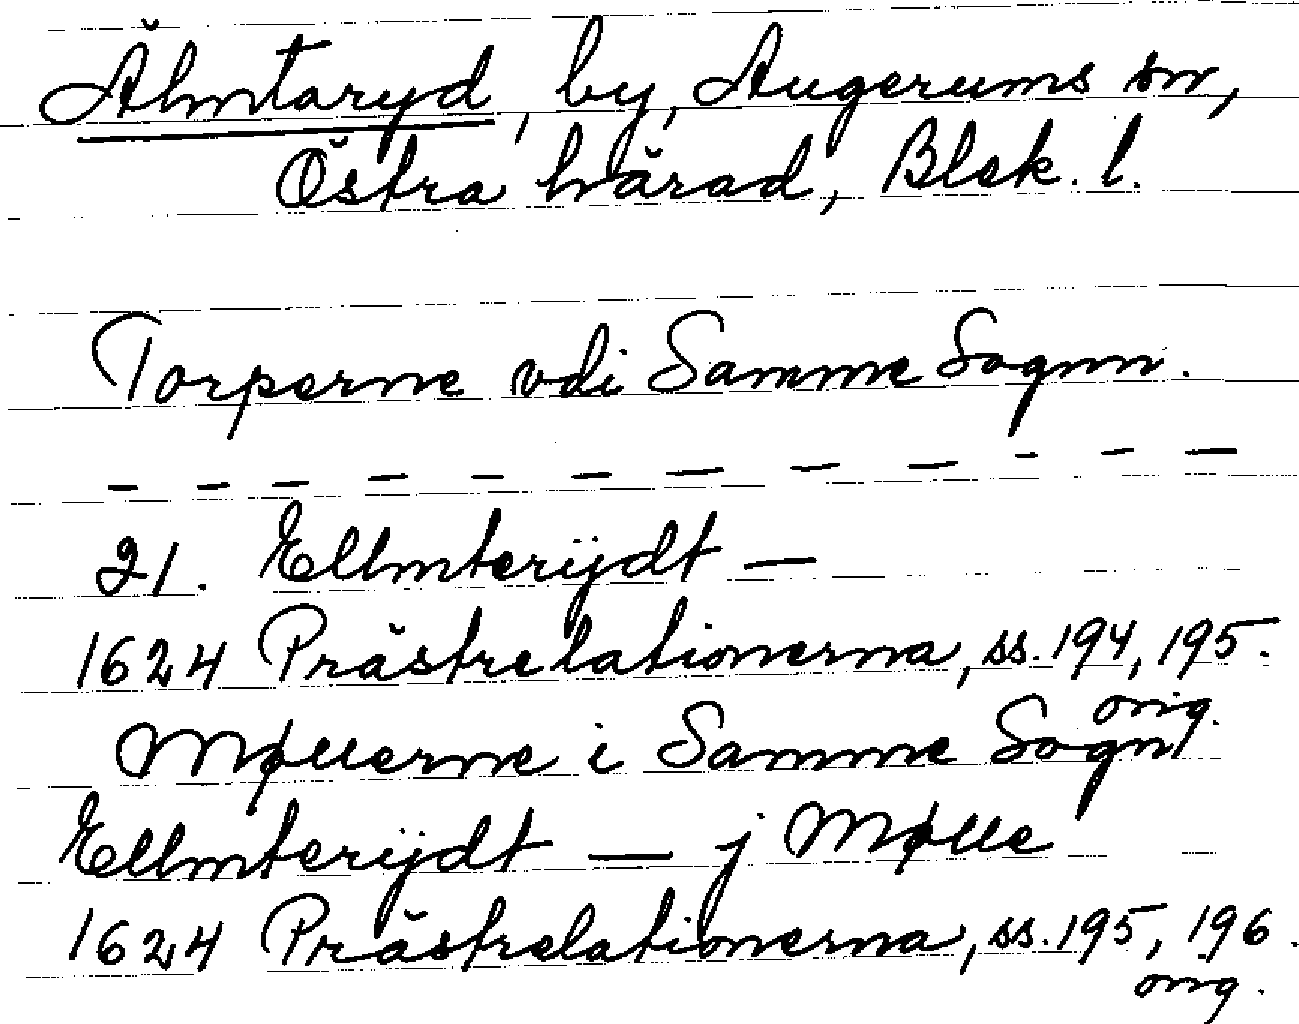 Älmtaryd, by, Augerums sn,
Östra härad, Blek. l.
Torperne vdi Samme Sognn.
— — — — — — — — — — — —
21. Ellmterÿdt —
1624 Prästrelationerna, ss. 194, 195.
orig.
Møllerne i Samme Sogn
Ellmterÿdt — j Mølle
1624 Prästrelationerna, ss. 195, 196.
orig.